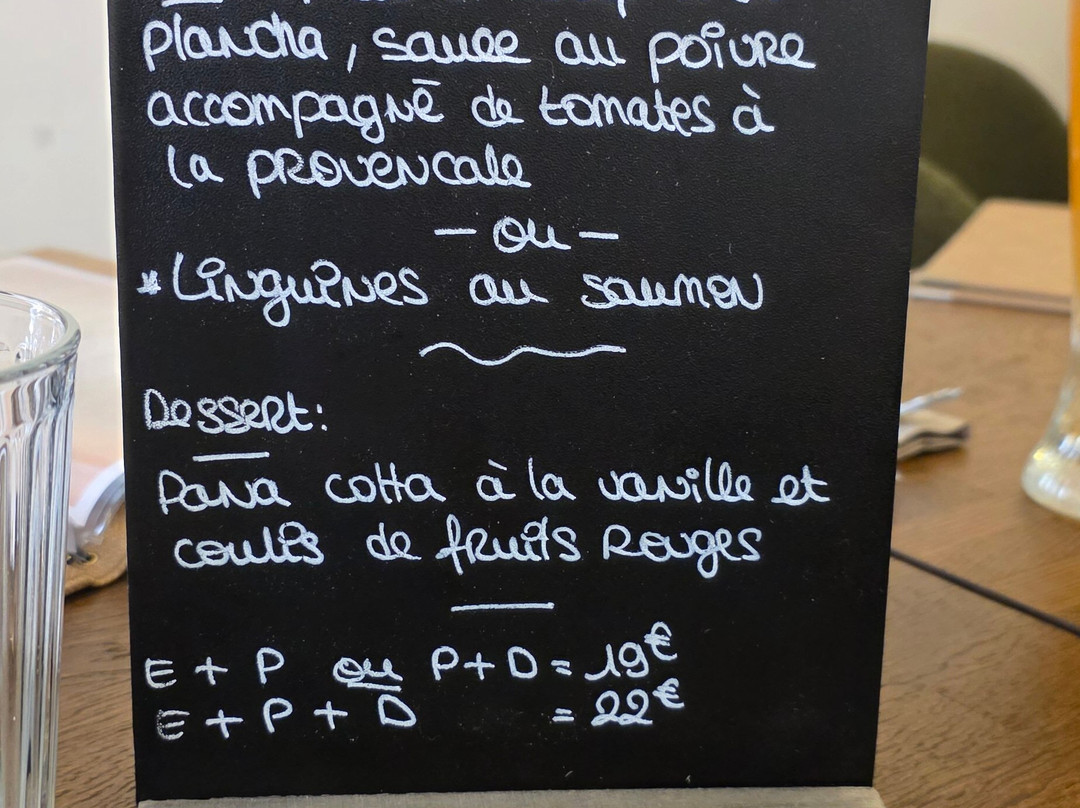 plancha, sauce au poivre
accompagné de tomates à
la provencale
- ou -
* Linguines au saumon
Dessert:
Pana cotta à la vanille et
coulis de fruits Rouges
E + P ou P+D = 19€
E + P + D = 22€